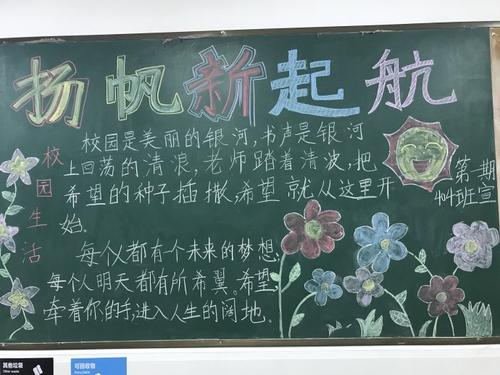 扬帆新起航
校园生活
校园是美丽的银河,书声是银河
上回荡的清浪,老师踏着清波,把
希望的种子插撒,希望就从这里开
始.
每个人都有个未来的梦想.
每个人明天都有所希翼。希望
牵着你的手,进入人生的阔地.
第一期
404班宣
其他垃圾
可回收物